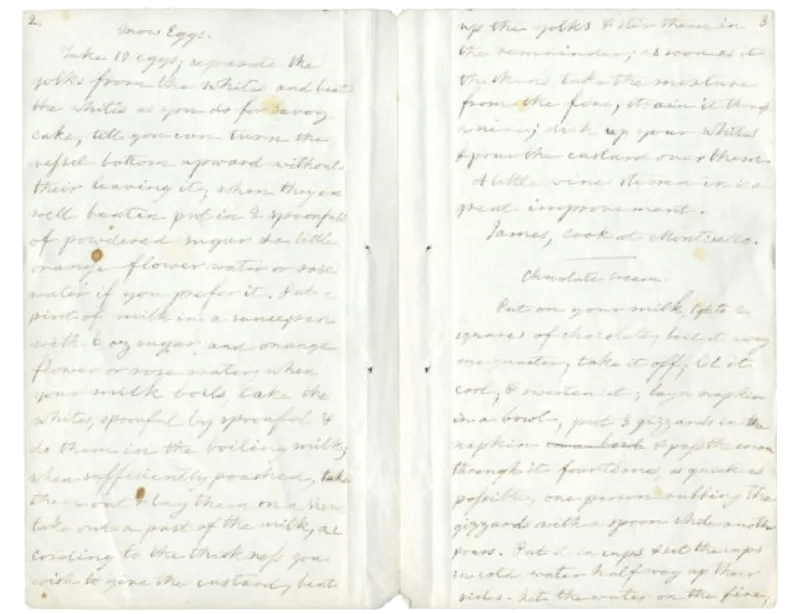 2.
Snow Eggs.
Take 10 eggs, separate the
yolks from the whites and beat
the whites as you do for savoy
cake, till you can turn the
vessel bottom upward without
their leaving it; when they are
well beaten put in 2 spoonfuls
of powdered sugar & a little
orange flower water or rose
water if you prefer it. Put a
pint of milk in a saucepan
with 6 oz sugar and orange
flower or rose water; when
your milk boils take the
whites, spoonful by spoonful &
do them in the boiling milk;
when sufficiently poached, take
them out & lay them on a sieve
take out a part of the milk, ac
cording to the thickness you
wish to give the custard, beat
3
up the yolks & stir them in
the remainder; as soon as it
thickens take the mixture
from the fire, strain it through
a sieve; dish up your whites
& pour the custard over them.
A little wine stirred in is a
great improvement.
James, cook at Monticello.
Chocolate Cream.
Put on your milk, 1 qt to 2
squares of chocolate; boil it away
one quarter; take it off; let it
cool, & sweeten it; lay a napkin
in a bowl, put 3 gizzards in the
napkin & pass the cream
through it four times, as quick as
possible, one person rubbing the
gizzards with a spoon while another
pours. Put it in cups & set the cups
in cold water half way up their
sides. Set the water on the fire,